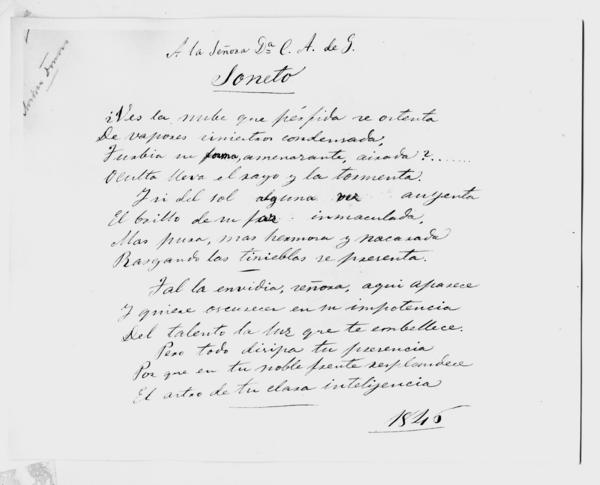 A la Señora Dª C. A. de G.
Soneto
¿Ves la nube que pérfida se ostenta
De vapores siniestros condensada,
Turbia su forma, amenazante, airada?.......
Oculta lleva el rayo y la tormenta.
Y si del sol alguna vez auyenta
El brillo de su faz inmaculada,
Mas pura, mas hermosa y nacarada
Rasgando las tinieblas se presenta.
Tal la envidia, señora, aqui aparece
Y quiere oscurecer en su impotencia
Del talento la luz que te embellece.
Pero todo disipa tu presencia
Por que en tu noble frente resplandece
El astro de tu clara intelijencia
1846